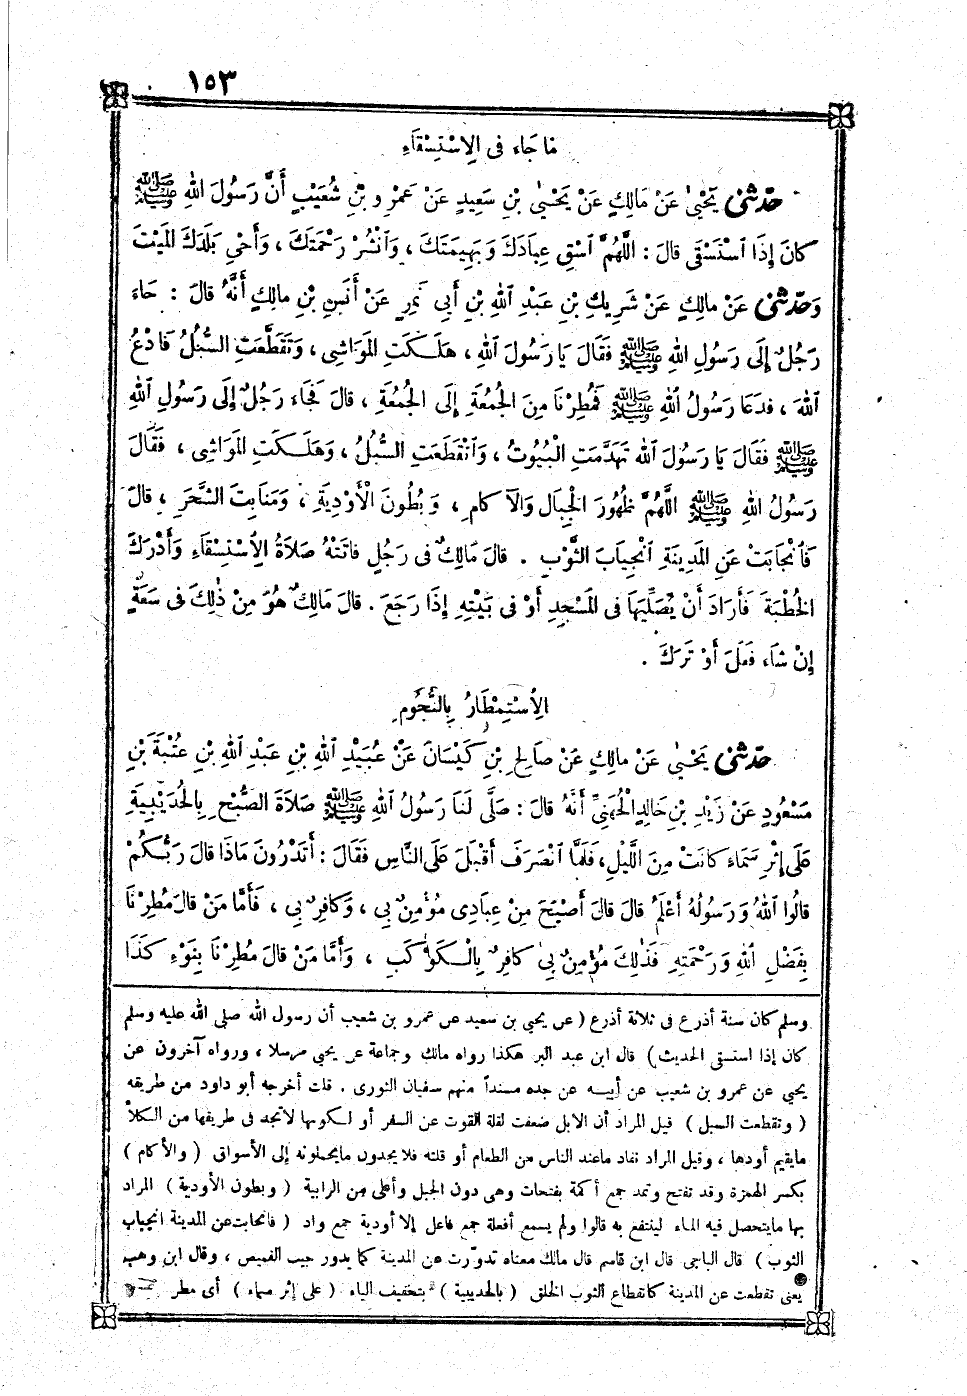 ١٥٣
مَا جَاءَ فِى الِاسْتِسْقَاءِ
حَدَّثَنِى يَحْيَى عَنْ مَالِكٍ عَنْ يَحْيَى بْنِ سَعِيدٍ عَنْ عَمْرِو بْنِ شُعَيْبٍ أَنَّ رَسُولَ اللهِ ﷺ
كَانَ إِذَا اسْتَسْقَى قالَ : اللَّهُمَّ اسْقِ عِبَادَكَ وَبَهِيمَتَكَ ، وَانْشُرْ رَحْمَتَكَ ، وَأَحْيِ بَلَدَكَ المَيِّتَ
وَحَدَّثَنِى عَنْ مالِكٍ عَنْ شَرِيكِ بْنِ عَبْدِ اللهِ بْنِ أَبِى نَمِرٍ عَنْ أَنَسِ بْنِ مالِكٍ أَنَّهُ قالَ : جَاءَ
رَجُلٌ إِلَى رَسُولِ اللهِ ﷺ فَقَالَ يَا رَسُولَ اللهِ ، هَلَكَتِ المَوَاشِى ، وَتَقَطَّعَتِ السُّبُلُ فَادْعُ
اللهَ ، فَدَعَا رَسُولُ اللهِ ﷺ فَمُطِرْنَا مِنَ الجُمُعَةِ إِلَى الجُمُعَةِ ، قالَ فَجَاءَ رَجُلٌ إِلَى رَسُولِ اللهِ
ﷺ فَقَالَ يَا رَسُولَ اللهِ تَهَدَّمَتِ الْبُيُوتُ ، وَانْقَطَعَتِ السُّبُلُ ، وَهَلَكَتِ المَوَاشِى ، فَقَالَ
رَسُولُ اللهِ ﷺ اللَّهُمَّ ظُهُورَ الجِبَالِ وَالآكامِ ، وَبُطُونَ الْأَوْدِيَةِ ، وَمَنَابِتَ الشَّجَرِ ، قالَ
فَانْجَابَتْ عَنِ المَدِينَةِ انْجِيَابَ الثَّوْبِ . قالَ مَالِكٌ فِى رَجُلٍ فاتَتْهُ صَلَاةُ الِاسْتِسْقَاءِ وَأَدْرَكَ
الخُطْبَةَ فَأَرَادَ أَنْ يُصَلِّيَهَا فِى المَسْجِدِ أَوْ فِى بَيْتِهِ إِذَا رَجَعَ . قالَ مَالِكٌ هُوَ مِنْ ذٰلِكَ فِى سَعَةٍ
إِنْ شَاءَ فَعَلَ أَوْ تَرَكَ .
الِاسْتِمْطَارُ بِالنُّجُومِ
حَدَّثَنِى يَحْيَى عَنْ مالِكٍ عَنْ صَالِحِ بْنِ كَيْسَانَ عَنْ عُبَيْدِ اللهِ بْنِ عَبْدِ اللهِ بْنِ عُتْبَةَ بْنِ
مَسْعُودٍ عَنْ زَيْدِ بْنِ خَالِدٍ الْجُهَنِىِّ أَنَّهُ قالَ : صَلَّى لَنَا رَسُولُ اللهِ ﷺ صَلَاةَ الصُّبْحِ بِالْحُدَيْبِيَةِ
عَلَى إِثْرِ سَمَاءٍ كانَتْ مِنَ اللَّيْلِ ، فَلَمَّا انْصَرَفَ أَقْبَلَ عَلَى النَّاسِ فَقَالَ : أَتَدْرُونَ مَاذَا قالَ رَبُّكُمْ
قالُوا اللهُ وَرَسُولُهُ أَعْلَمُ قالَ قالَ أَصْبَحَ مِنْ عِبَادِى مُؤْمِنٌ بِى ، وَكافِرٌ بِى ، فَأَمَّا مَنْ قالَ مُطِرْنَا
بِفَضْلِ اللهِ وَرَحْمَتِهِ فَذٰلِكَ مُؤْمِنٌ بِى كافِرٌ بِالْكَوَاكَبِ ، وَأَمَّا مَنْ قالَ مُطِرْنَا بِنَوْءِ كَذَا
وسلم كان ستة أذرع فى ثلاثة أذرع ( عن يحيى بن سعيد عن عمرو بن شعيب أن رسول الله صلى الله عليه وسلم
كان إذا استسقى الحديث ) قال ابن عبد البر هكذا رواه مالك وجماعة عن يحيى مرسلا ، ورواه آخرون عن
يحيى عن عمرو بن شعيب عن أبيه عن جده مسنداً منهم سفيان الثورى . قلت أخرجه أبو داود من طريقه
( وتقطعت السبل ) قيل المراد أن الابل ضعفت لقلة القوت عن السفر أو لكونها لا تجد فى طريقها من الكلأ
مايقيم أودها ، وقيل المراد نفاد ماعند الناس من الطعام أو قلته فلا يجدون مايحملونه إلى الأسواق ( والأكام )
بكسر الهمزة وقد تفتح وتمد جمع أكمة بفتحات وهى دون الجبل وأعلى من الرابية ( وبطون الأودية ) المراد
بها مايتحصل فيه الماء لينتفع به قالوا ولم يسمع أفعلة جمع فاعل إلا أودية جمع واد ( فانجابت عن المدينة انجياب
الثوب ) قال الباجى قال ابن قاسم قال مالك معناه تدوّرت عن المدينة كما يدور جيب القميص ، وقال ابن وهب
يعنى تقطعت عن المدينة كانقطاع الثوب الخلق ( بالحديبية ) بتخفيف الياء ( على إثر سماء ) أى مطر